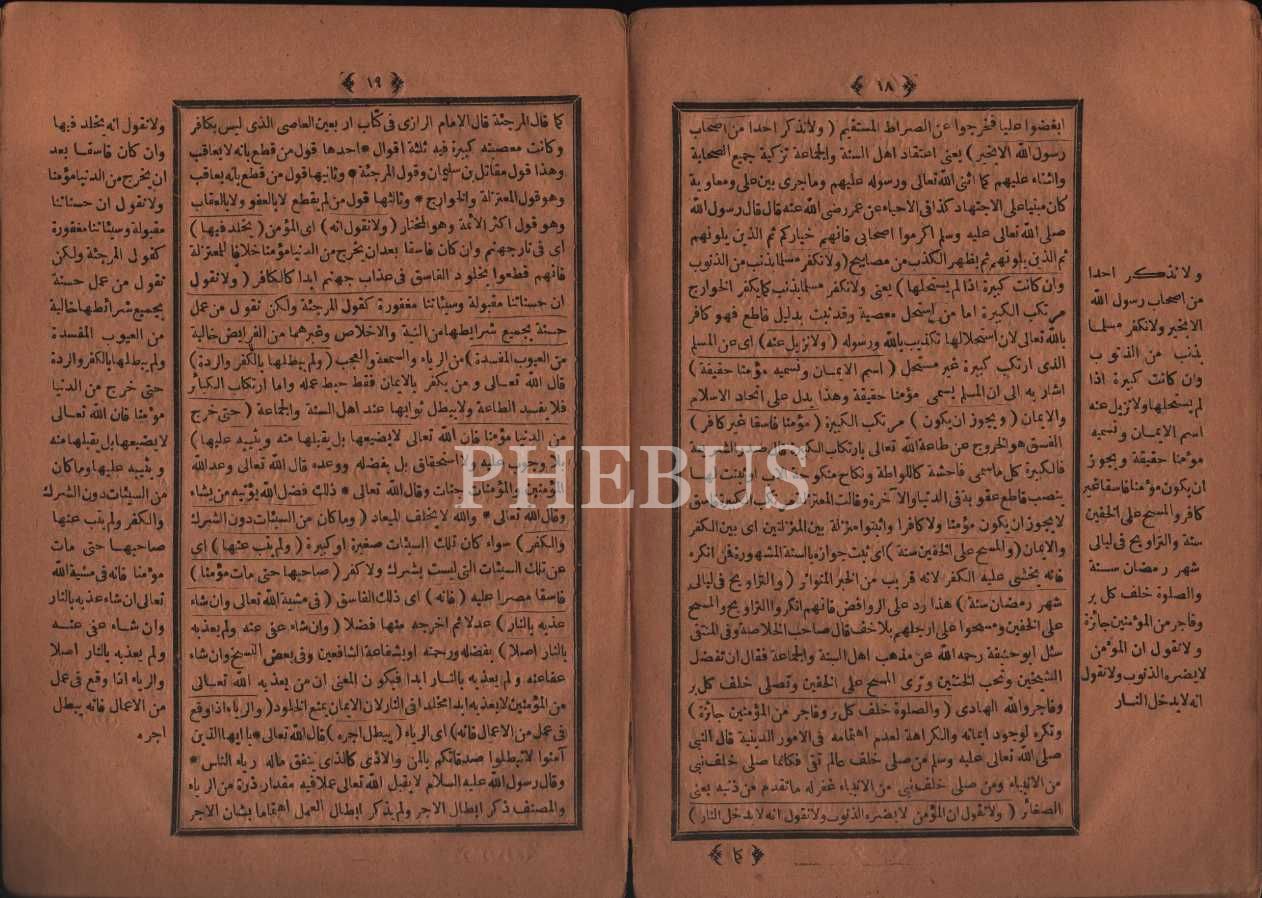 ١٨
ابغضوا عليا فخرجوا عن الصراط المستقيم ( ولا نذكر احدا من اصحاب
رسول الله الا بخير ) يعنى اعتقاد اهل السنة والجماعة تزكية جميع الصحابة
واثناء عليهم كما اثنى الله تعالى ورسوله عليهم وماجرى بين على ومعاوية
كان مبنيا على الاجتهاد كذا فى الاحياء عن عمر رضى الله عنه قال قال رسول الله
صلى الله تعالى عليه وسلم اكرموا اصحابى فانهم خياركم ثم الذين يلونهم
ثم الذين يلونهم ثم يظهر الكذب من مصابيح ( ولا نكفر مسلما بذنب من الذنوب
وان كانت كبيرة اذا لم يستحلها ) يعنى ولا نكفر مسلما بذنب كما يكفر الخوارج
مرتكب الكبيرة اما من استحل معصية وقد ثبت بدليل قاطع فهو كافر
بالله تعالى لان استحلالها تكذيب بالله ورسوله ( ولا نزيل عنه ) اى عن المسلم
الذى ارتكب كبيرة غير مستحل ( اسم الايمان ونسميه مؤمنا حقيقة )
اشار به الى ان المسلم يسمى مؤمنا حقيقة وهذا يدل على اتحاد الاسلام
والايمان ( ويجوز ان يكون ) مرتكب الكبيرة ( مؤمنا فاسقا غير كافر )
الفسق هو الخروج عن طاعة الله تعالى بارتكاب الكبيرة
فالكبيرة كل ما سمى فاحشة كاللواطة ونكاح منكوحة
بنص قاطع عقوبة فى الدنيا والآخرة وقالت المعتزلة
لا يجوز ان يكون مؤمنا ولا كافرا واثبتوا منزلة بين المنزلتين اى بين الكفر
والايمان ( والمسح على الخفين سنة ) اى ثبت جوازه بالسنة المشهورة فمن انكره
فانه يخشى عليه الكفر لانه قريب من الخبر المتواتر ( والتراويح فى ليالى
شهر رمضان سنة ) هذا رد على الروافض فانهم انكروا التراويح والمسح
على الخفين ومسحوا على ارجلهم بلا خف قال صاحب الخلاصة وفى المنتقى
سئل ابو حنيفة رحمه الله عن مذهب اهل السنة والجماعة فقال ان تفضل
الشيخين وتحب الختنين وترى المسح على الخفين وتصلى خلف كل بر
وفاجر والله الهادى ( والصلوة خلف كل بر وفاجر من المؤمنين جائزة )
وتكره لوجود ايمانه والكراهة لعدم اهتمامه فى الامور الدينية قال النبى
صلى الله تعالى عليه وسلم من صلى خلف عالم تقى فكانما صلى خلف نبى
من الانبياء ومن صلى خلف نبى من الانبياء غفر له ما تقدم من ذنبه يعنى
الصغائر ( ولا نقول ان المؤمن لا يضره الذنوب ولا نقول انه لا يدخل النار )
كما
ولا نذكر احدا
من اصحاب رسول الله
الا بخير ولا نكفر مسلما
بذنب من الذنوب
وان كانت كبيرة اذا
لم يستحلها ولا نزيل عنه
اسم الايمان ونسميه
مؤمنا حقيقة ويجوز
ان يكون مؤمنا فاسقا غير
كافر والمسح على الخفين
سنة والتراويح فى ليالى
شهر رمضان سنة
والصلوة خلف كل بر
وفاجر من المؤمنين جائزة
ولا نقول ان المؤمن
لا يضره الذنوب ولا نقول
انه لا يدخل النار
١٩
كما قال المرجئة قال الامام الرازى فى كتاب اربعين العاصى الذى ليس بكافر
وكانت معصيته كبيرة فيه ثلثة اقوال * احدها قول من قطع بانه لا يعاقب
وهذا قول مقاتل بن سليمان وقول المرجئة * وثانيها قول من قطع بانه يعاقب
وهو قول المعتزلة والخوارج * وثالثها قول من لم يقطع لا بالعفو ولا بالعقاب
وهو قول اكثر الائمة وهو المختار ( ولا نقول انه ) اى المؤمن ( يخلد فيها )
اى فى نار جهنم وان كان فاسقا بعد ان يخرج من الدنيا مؤمنا خلافا للمعتزلة
فانهم قطعوا بخلود الفاسق فى عذاب جهنم ابدا كالكافر ( ولا نقول
ان حسناتنا مقبولة وسيئاتنا مغفورة كقول المرجئة ولكن نقول من عمل
حسنة بجميع شرايطها من النية والاخلاص وغيرهما من الفرايض خالية
من العيوب المفسدة ) من الرياء والسمعة والعجب ( ولم يبطلها بالكفر والردة )
قال الله تعالى ومن يكفر بالايمان فقط حبط عمله واما ارتكاب الكبائر
فلا يفسد الطاعة ولا يبطل ثوابها عند اهل السنة والجماعة ( حتى خرج
من الدنيا مؤمنا فان الله تعالى لا يضيعها بل يقبلها منه ويثيبه عليها )
بلا وجوب عليه ولا استحقاق بل بفضله ووعده قال الله تعالى وعد الله
المؤمنين والمؤمنات جنات وقال الله تعالى * ذلك فضل الله يؤتيه من يشاء
وقال الله تعالى * والله لا يخلف الميعاد ( وما كان من السيئات دون الشرك
والكفر ) سواء كان تلك السيئات صغيرة او كبيرة ( ولم يتب عنها ) اى
عن تلك السيئات التى ليست بشرك ولا كفر ( صاحبها حتى مات مؤمنا )
فاسقا مصرا عليه ( فانه ) اى ذلك الفاسق ( فى مشية الله تعالى وان شاء
عذبه بالنار ) عدلا ثم اخرجه منها فضلا ( وان شاء عفى عنه ولم يعذبه
بالنار اصلا ) بفضله ورحمته او بشفاعة الشافعين وفى بعض النسخ وان شاء
عفا عنه ولم يعذبه بالنار ابدا فيكون المعنى ان من يعذبه الله تعالى
من المؤمنين لا يعذبه ابدا مخلدا فى النار لان الايمان يمنع الخلود ( والرياء اذا وقع
فى عمل من الاعمال فانه ) اى الرياء ( يبطل اجره ) قال الله تعالى * يا ايها الذين
آمنوا لا تبطلوا صدقاتكم بالمن والاذى كالذى ينفق ماله رياء الناس *
وقال رسول الله عليه السلام لا يقبل الله تعالى عملا فيه مقدار ذرة من الرياء
والمصنف ذكر ابطال الاجر ولم يذكر ابطال العمل اهتماما بشان الاجر
ولا نقول انه يخلد فيها
وان كان فاسقا بعد
ان يخرج من الدنيا مؤمنا
ولا نقول ان حسناتنا
مقبولة وسيئاتنا مغفورة
كقول المرجئة ولكن
نقول من عمل حسنة
بجميع شرائطها خالية
من العيوب المفسدة
ولم يبطلها بالكفر والردة
حتى خرج من الدنيا
مؤمنا فان الله تعالى
لا يضيعها بل يقبلها منه
ويثيبه عليها وما كان
من السيئات دون الشرك
والكفر ولم يتب عنها
صاحبها حتى مات
مؤمنا فانه فى مشية الله
تعالى ان شاء عذبه بالنار
وان شاء عفى عنه
ولم يعذبه بالنار اصلا
والرياء اذا وقع فى عمل
من الاعمال فانه يبطل
اجره
PHEBUS